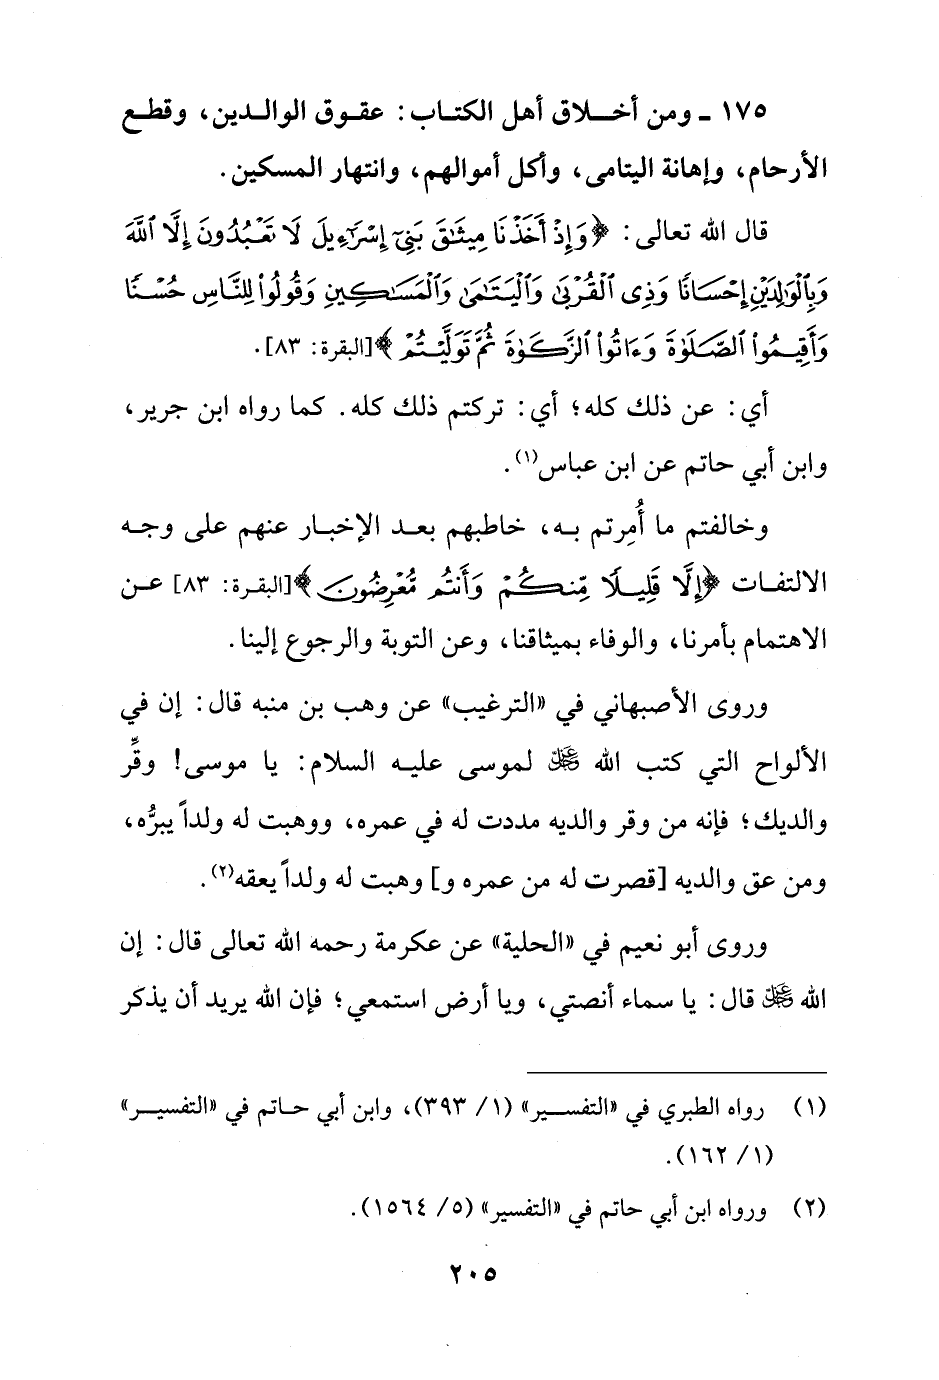 ١٧٥ ـ ومن أخـلاق أهل الكتـاب: عقـوق الوالـدين، وقطـع
الأرحام، وإهانة اليتامى، وأكل أموالهم، وانتهار المسكين.
قال الله تعالى: ﴿وَإِذْ أَخَذْنَا مِيثَٰقَ بَنِىٓ إِسْرَٰٓءِيلَ لَا تَعْبُدُونَ إِلَّا ٱللَّهَ
وَبِٱلْوَٰلِدَيْنِ إِحْسَانًا وَذِى ٱلْقُرْبَىٰ وَٱلْيَتَٰمَىٰ وَٱلْمَسَٰكِينِ وَقُولُوا۟ لِلنَّاسِ حُسْنًا
وَأَقِيمُوا۟ ٱلصَّلَوٰةَ وَءَاتُوا۟ ٱلزَّكَوٰةَ ثُمَّ تَوَلَّيْتُمْ﴾[البقرة: ٨٣].
أي: عن ذلك كله؛ أي: تركتم ذلك كله. كما رواه ابن جرير،
وابن أبي حاتم عن ابن عباس(١).
وخالفتم ما أُمِرتم بـه، خاطبهم بعـد الإخبـار عنهم على وجـه
الالتفـات ﴿إِلَّا قَلِيلًا مِّنكُمْ وَأَنتُم مُّعْرِضُونَ﴾[البقرة: ٨٣] عـن
الاهتمام بأمرنا، والوفاء بميثاقنا، وعن التوبة والرجوع إلينا.
وروى الأصبهاني في «الترغيب» عن وهب بن منبه قال: إن في
الألواح التي كتب الله ﷿ لموسى عليـه السلام: يا موسى! وقِّر
والديك؛ فإنه من وقر والديه مددت له في عمره، ووهبت له ولداً يبرُّه،
ومن عق والديه [قصرت له من عمره و] وهبت له ولداً يعقه(٢).
وروى أبو نعيم في «الحلية» عن عكرمة رحمه الله تعالى قال: إن
الله ﷿ قال: يا سماء أنصتي، ويا أرض استمعي؛ فإن الله يريد أن يذكر
(١) رواه الطبري في «التفسـير» (١/ ٣٩٣)، وابن أبي حـاتم في «التفسيـر»
(١/ ١٦٢).
(٢) ورواه ابن أبي حاتم في «التفسير» (٥/ ١٥٦٤).
٢٠٥